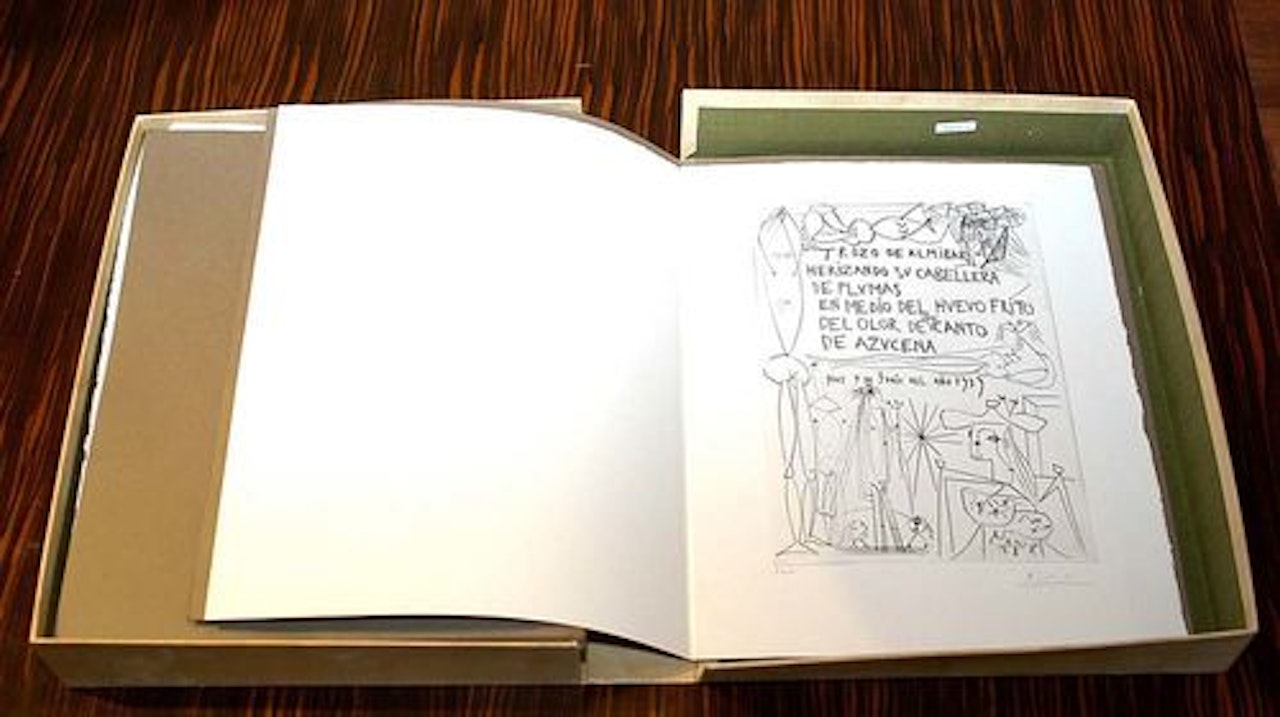 TROZO DE ALMIBAR
HERIZANDO SU CABELLERA
DE PLVMAS
EN MEDIO DEL HVEVO FRITO
DEL OLOR DE CANTO
DE AZVCENA
del año 1959